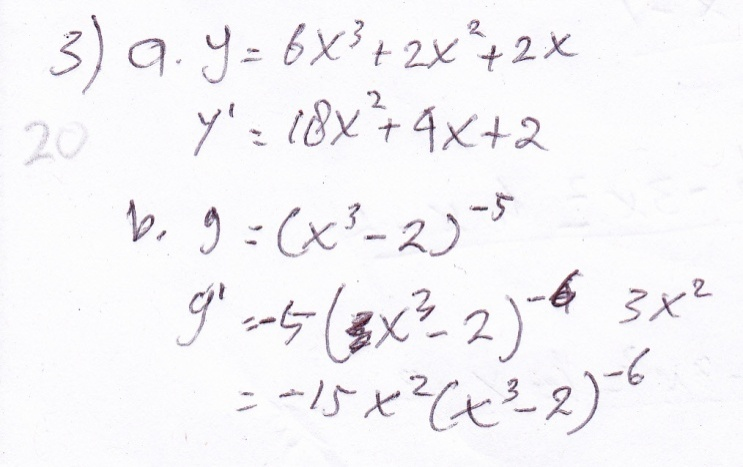 3) a. y = 6x³ + 2x² + 2x
20 y' = 18x² + 4x + 2
b. y = (x³ - 2)⁻⁵
y' = -5(x³ - 2)⁻⁶ 3x²
= -15x²(x³ - 2)⁻⁶